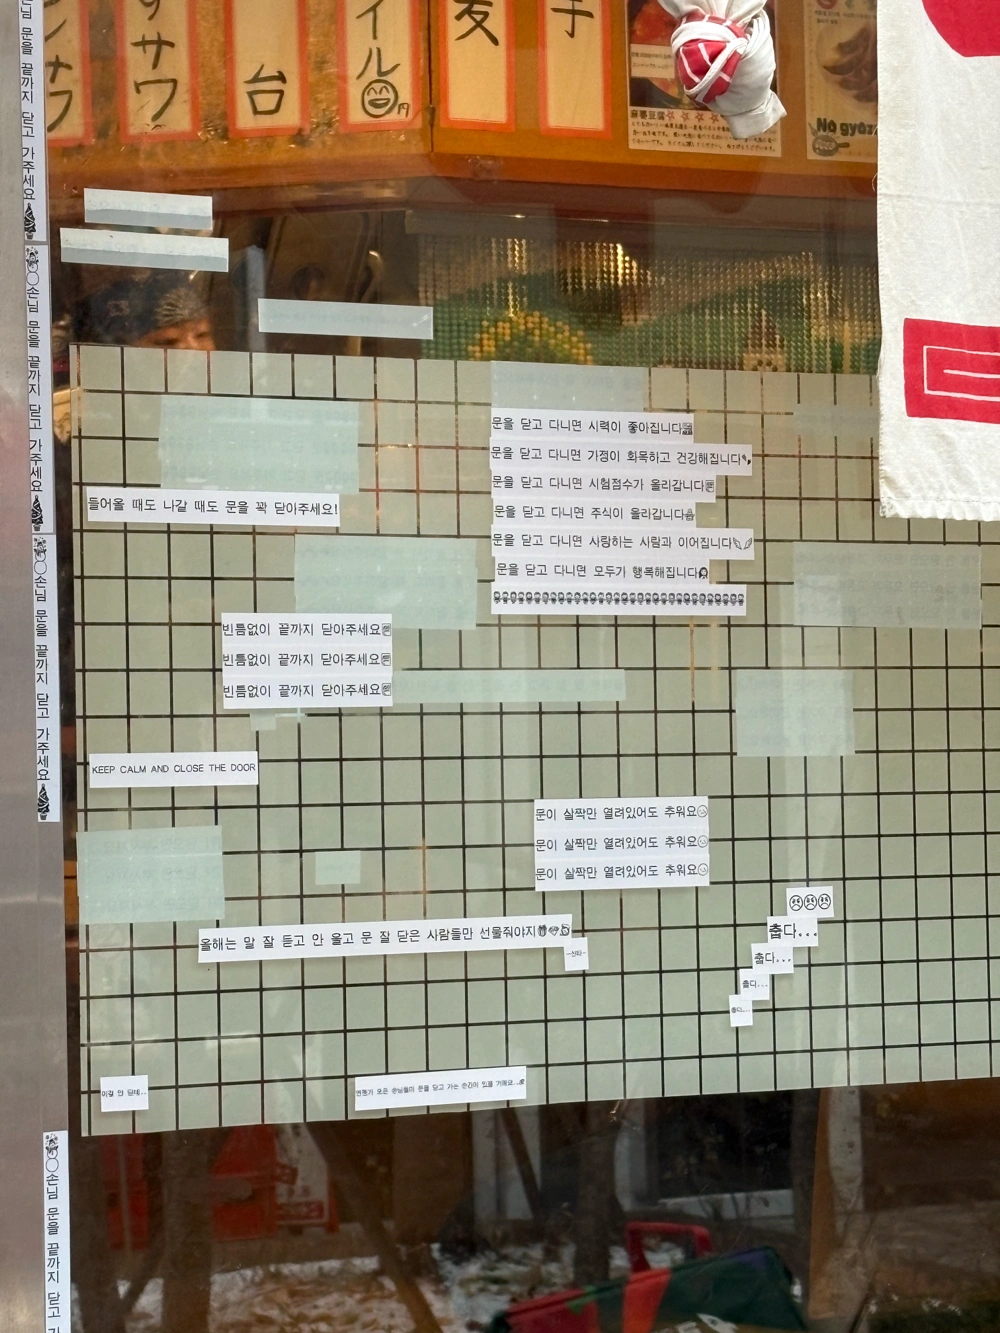 サワ
台
イル
円
友
子
麻婆豆腐
No gyoz
손님 문을 끝까지 닫고 가주세요
손님 문을 끝까지 닫고 가주세요
손님 문을 끝까지 닫고 가주세요
손님 문을 끝까지 닫고
문을 닫고 다니면 시력이 좋아집니다
문을 닫고 다니면 가정이 화목하고 건강해집니다
문을 닫고 다니면 시험점수가 올라갑니다
문을 닫고 다니면 주식이 올라갑니다
문을 닫고 다니면 사랑하는 사람과 이어집니다
문을 닫고 다니면 모두가 행복해집니다
들어올 때도 나갈 때도 문을 꽉 닫아주세요!
빈틈없이 끝까지 닫아주세요
빈틈없이 끝까지 닫아주세요
빈틈없이 끝까지 닫아주세요
KEEP CALM AND CLOSE THE DOOR
문이 살짝만 열려있어도 추워요
문이 살짝만 열려있어도 추워요
문이 살짝만 열려있어도 추워요
☹☹☹
춥다...
춥다...
춥다...
춥다...
올해는 말 잘 듣고 안 울고 문 잘 닫은 사람들만 선물줘야지
-산타-
이걸 안 닫네..
언젠가 모든 손님들이 문을 닫고 가는 순간이 있을 거예요..